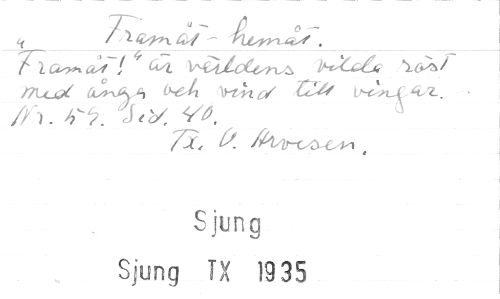 Framåt - hemåt.
"Framåt!" är världens vilda röst
med ånga och vind till vingar.
Nr. 59. Sid. 40.
Tx. O. Arvesen.
Sjung
Sjung TX 1935